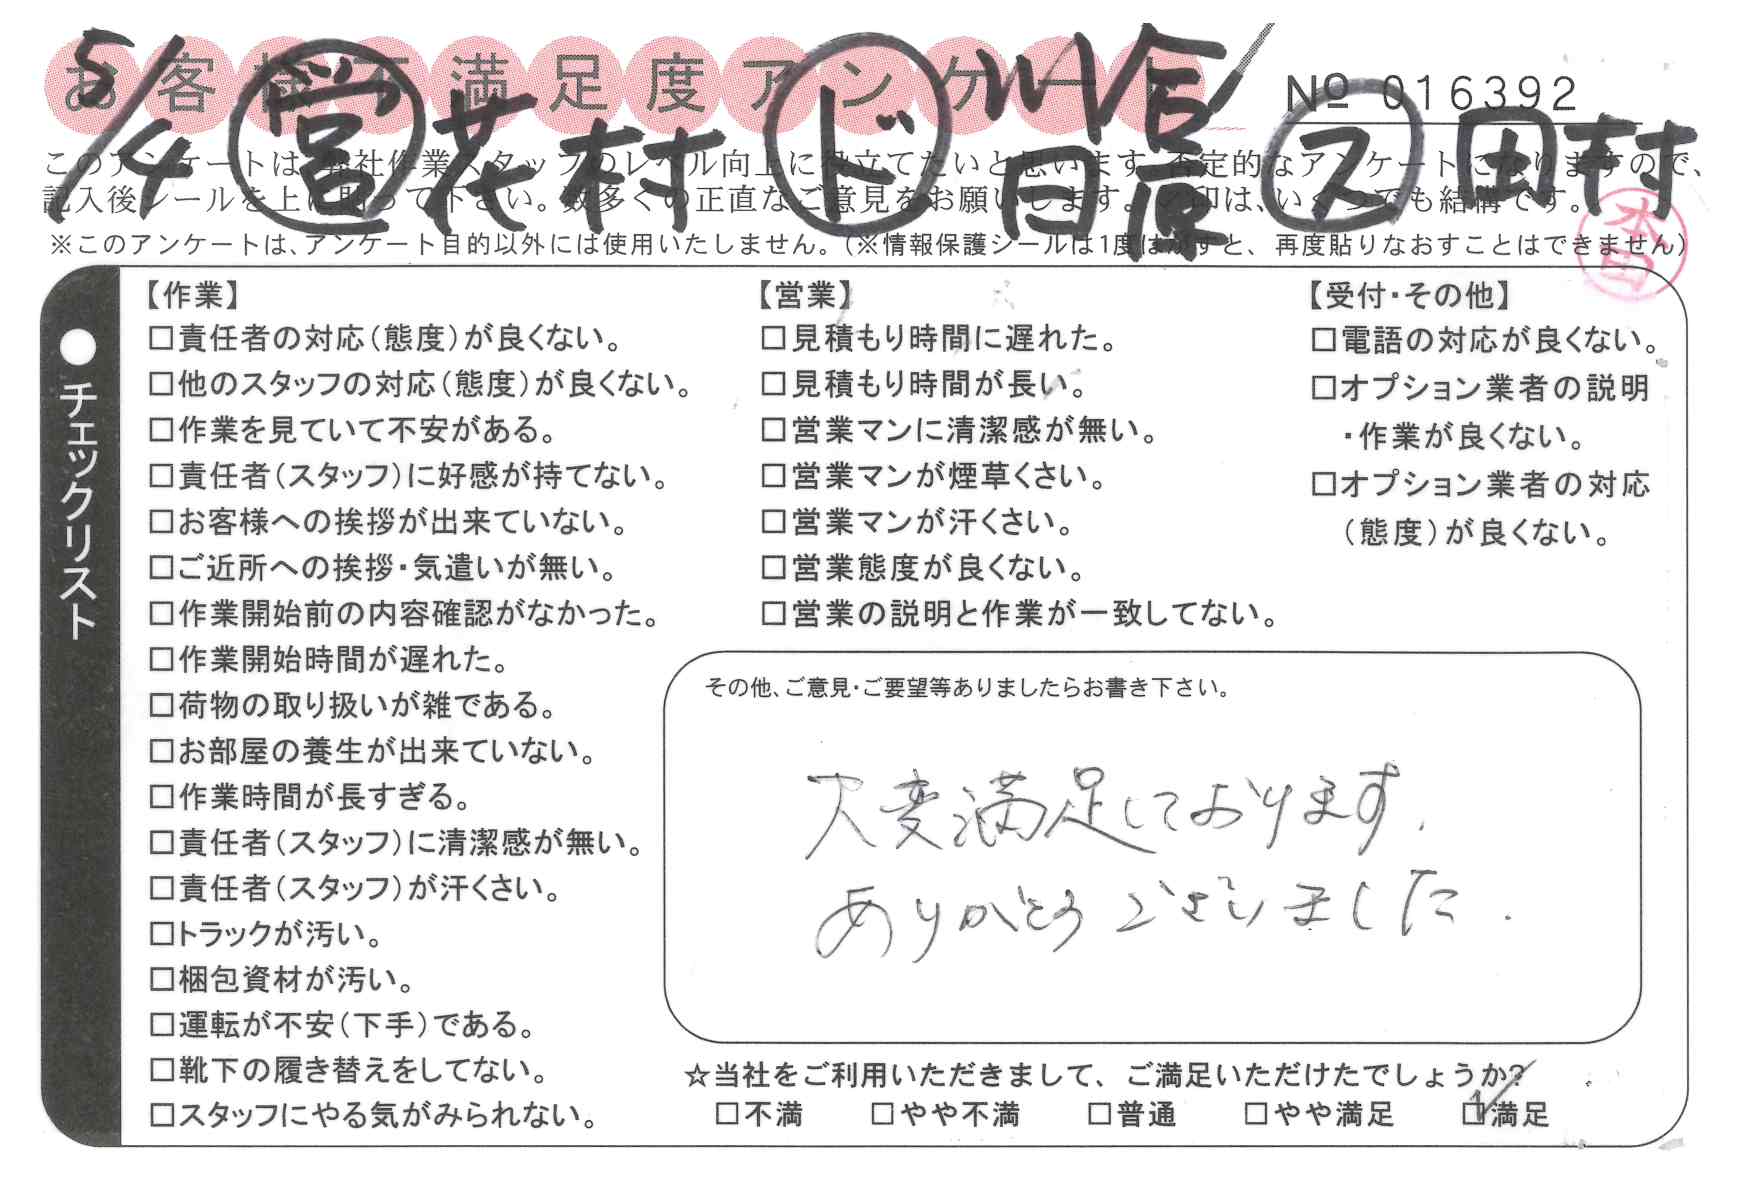 お客様不満足度アンケート
5/4 営 花村 ド 川合 日原 ス 田村
№ 016392
このアンケートは、弊社作業スタッフのレベル向上に役立てたいと思います。否定的なアンケートになりますので、
記入後シールを上に貼って下さい。数多くの正直なご意見をお願いします。✓印は、いくつでも結構です。
※このアンケートは、アンケート目的以外には使用いたしません。（※情報保護シールは1度はがすと、再度貼りなおすことはできません）
本田
●チェックリスト
【作業】
□責任者の対応（態度）が良くない。
□他のスタッフの対応（態度）が良くない。
□作業を見ていて不安がある。
□責任者（スタッフ）に好感が持てない。
□お客様への挨拶が出来ていない。
□ご近所への挨拶・気遣いが無い。
□作業開始前の内容確認がなかった。
□作業開始時間が遅れた。
□荷物の取り扱いが雑である。
□お部屋の養生が出来ていない。
□作業時間が長すぎる。
□責任者（スタッフ）に清潔感が無い。
□責任者（スタッフ）が汗くさい。
□トラックが汚い。
□梱包資材が汚い。
□運転が不安（下手）である。
□靴下の履き替えをしてない。
□スタッフにやる気がみられない。
【営業】
□見積もり時間に遅れた。
□見積もり時間が長い。
□営業マンに清潔感が無い。
□営業マンが煙草くさい。
□営業マンが汗くさい。
□営業態度が良くない。
□営業の説明と作業が一致してない。
【受付・その他】
□電話の対応が良くない。
□オプション業者の説明
・作業が良くない。
□オプション業者の対応
（態度）が良くない。
その他、ご意見・ご要望等ありましたらお書き下さい。
大変満足しております.
ありがとうございました.
☆当社をご利用いただきまして、ご満足いただけたでしょうか?
□不満 □やや不満 □普通 □やや満足 ☑満足